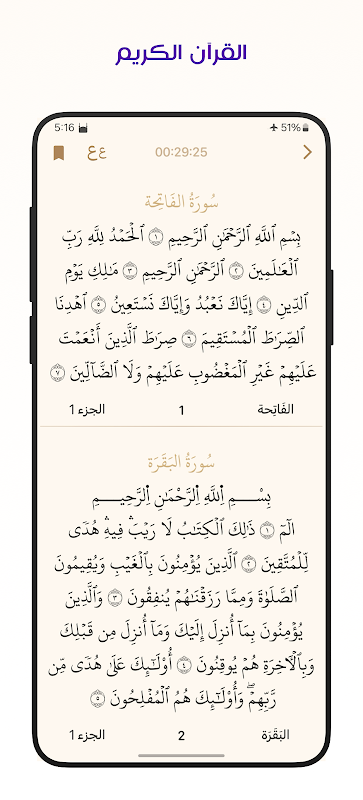 القرآن الكريم
5:16
51%
ع ع
00:29:25
سُورَةُ الفَاتِحَة
بِسْمِ ٱللَّهِ ٱلرَّحْمَٰنِ ٱلرَّحِيمِ ١ ٱلْحَمْدُ لِلَّهِ رَبِّ
ٱلْعَٰلَمِينَ ٢ ٱلرَّحْمَٰنِ ٱلرَّحِيمِ ٣ مَٰلِكِ يَوْمِ
ٱلدِّينِ ٤ إِيَّاكَ نَعْبُدُ وَإِيَّاكَ نَسْتَعِينُ ٥ ٱهْدِنَا
ٱلصِّرَٰطَ ٱلْمُسْتَقِيمَ ٦ صِرَٰطَ ٱلَّذِينَ أَنْعَمْتَ
عَلَيْهِمْ غَيْرِ ٱلْمَغْضُوبِ عَلَيْهِمْ وَلَا ٱلضَّآلِّينَ ٧
الفَاتِحة 1 الجزء 1
سُورَةُ البَقَرَة
بِسْمِ ٱللَّهِ ٱلرَّحْمَٰنِ ٱلرَّحِيمِ
الٓمٓ ١ ذَٰلِكَ ٱلْكِتَٰبُ لَا رَيْبَۛ فِيهِۛ هُدًى
لِّلْمُتَّقِينَ ٢ ٱلَّذِينَ يُؤْمِنُونَ بِٱلْغَيْبِ وَيُقِيمُونَ
ٱلصَّلَوٰةَ وَمِمَّا رَزَقْنَٰهُمْ يُنفِقُونَ ٣ وَٱلَّذِينَ
يُؤْمِنُونَ بِمَآ أُنزِلَ إِلَيْكَ وَمَآ أُنزِلَ مِن قَبْلِكَ
وَبِٱلْءَاخِرَةِ هُمْ يُوقِنُونَ ٤ أُو۟لَٰٓئِكَ عَلَىٰ هُدًى مِّن
رَّبِّهِمْۖ وَأُو۟لَٰٓئِكَ هُمُ ٱلْمُفْلِحُونَ ٥
البَقَرَة 2 الجزء 1